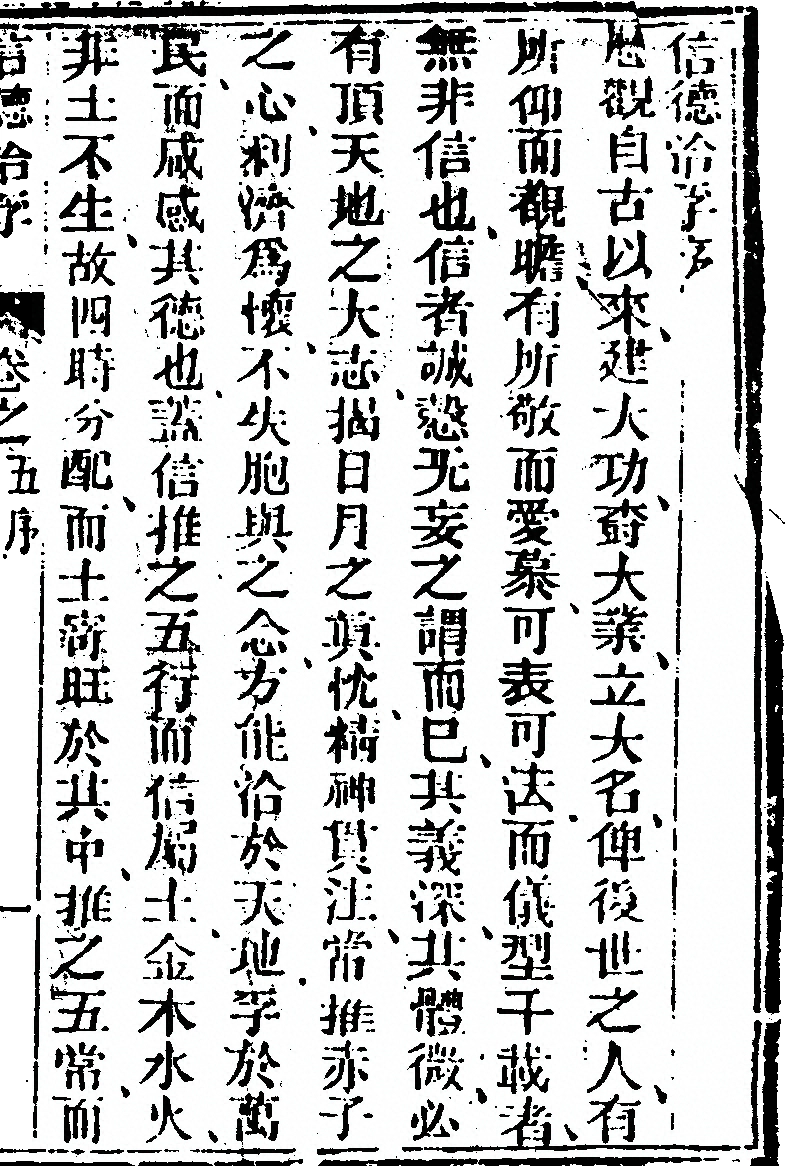 信德洽孚序
歷觀自古以來建大功樹大業立大名俾後世之人有
所仰而觀瞻有所敬而愛慕可表可法而儀型千載者
無非信也信者誠慤无妄之謂而已其義深其體微必
有頂天地之大志揭日月之眞忱精神貫注常推赤子
之心利濟爲懷不失胞與之念方能洽於天地孚於萬
民而咸感其德也蓋信推之五行而信屬土金木水火
非土不生故四時分配而土寄旺於其中推之五常而
信德洽孚 卷之五序 一